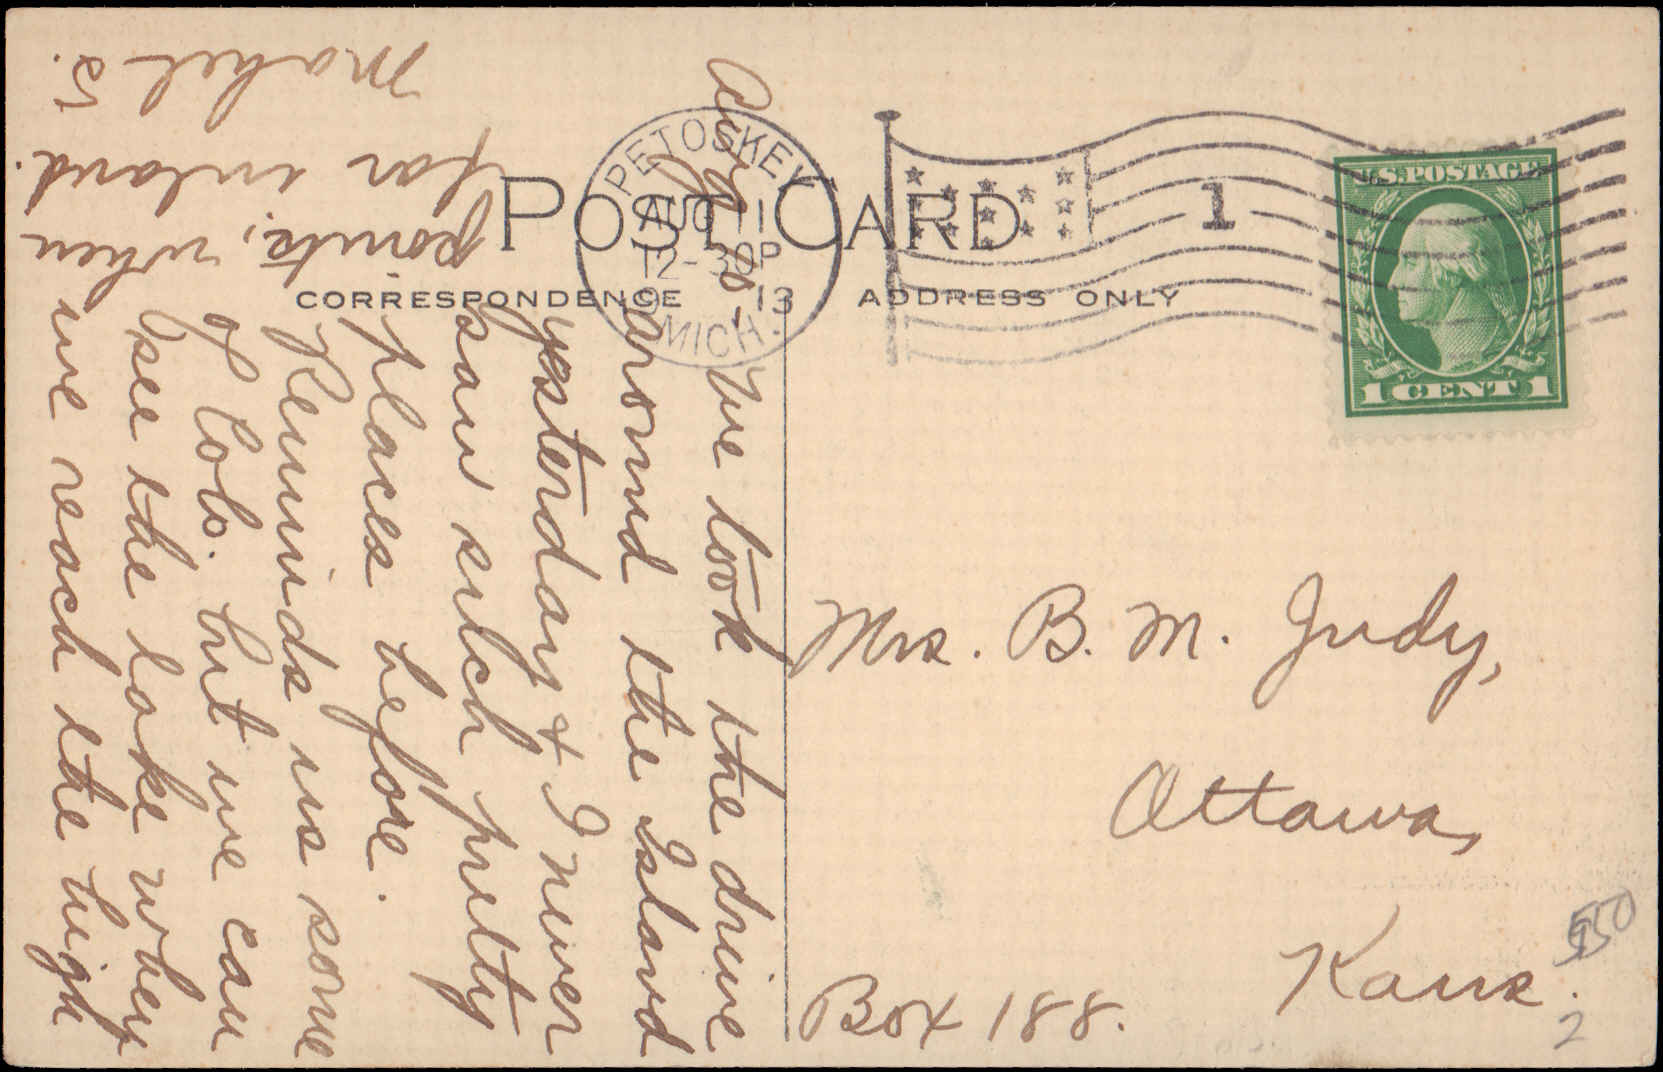 POST CARD
CORRESPONDENCE
ADDRESS ONLY
PETOSKEY
AUG 11
12-30P
13
MICH.
1
U.S. POSTAGE
1 CENT 1
Aug. 8 -
We took the drive
around the Island
yesterday & I never
saw such pretty
places before.
Reminds us some
of Colo. but we can
see the lake when
we reach the high
points, when
far inland.
Mabel S.
Mrs. B. M. Judy,
Ottawa,
Kans.
Box 188.
550
2